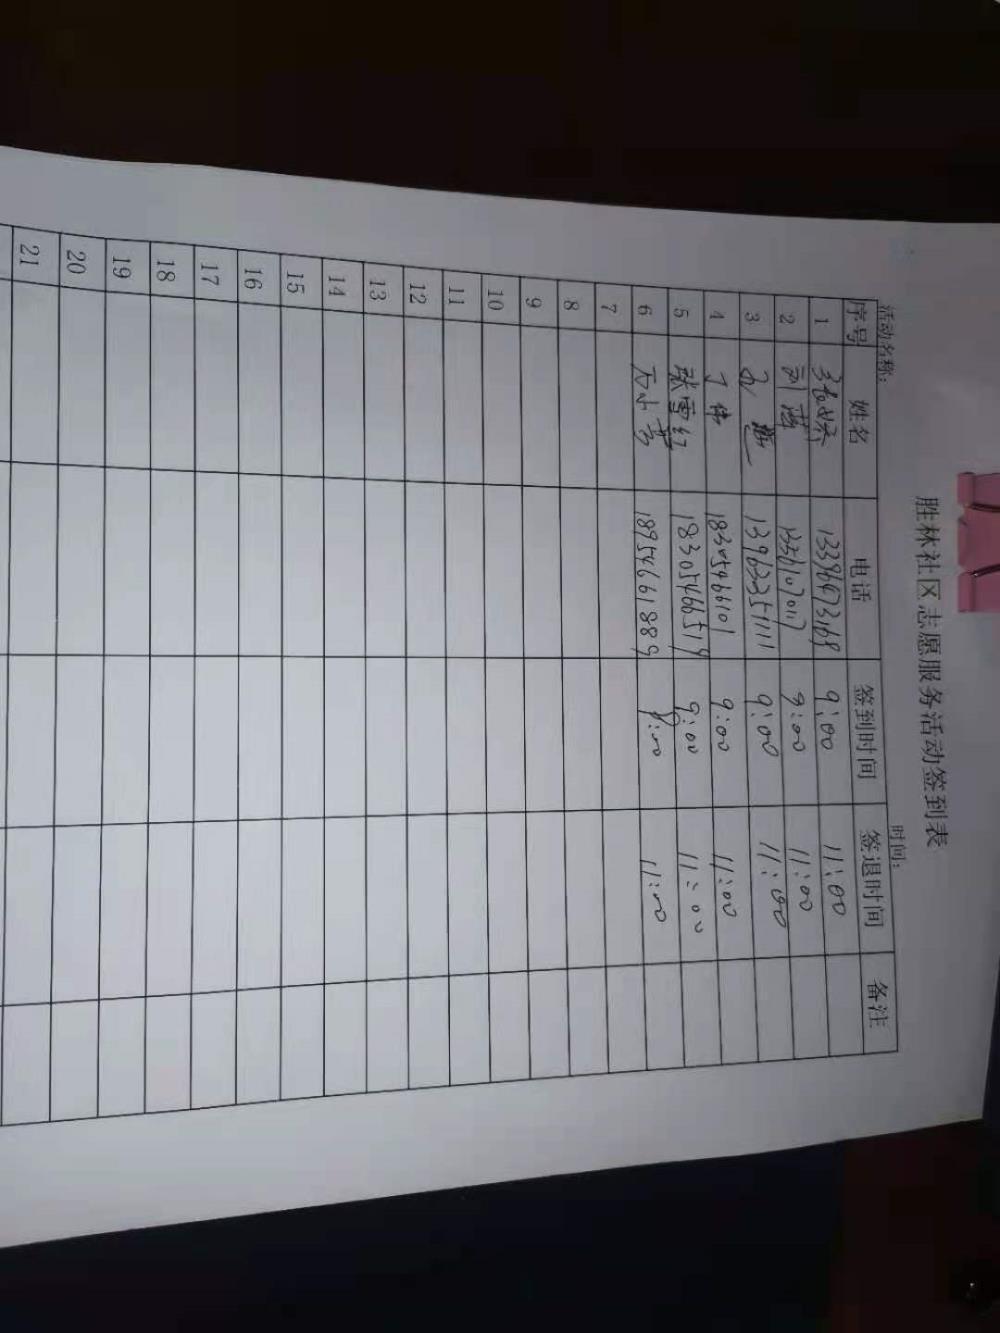 胜林社区志愿服务活动签到表
活动名称: 时间:
序号 姓名 电话 签到时间 签退时间 备注
1 张娇 13396673168 9:00 11:00
2 刘萍 9:00 11:00
3 13963351111 9:00 11:00
4 丁伟 18305466101 9:00 11:00
5 张雪红 18305466519 9:00 11:00
6 石小芳 18954661889 9:00 11:00
7
8
9
10
11
12
13
14
15
16
17
18
19
20
21